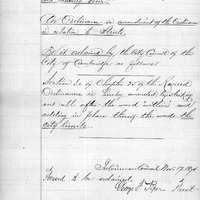 An Ordinance in amendment of the Ordinance
in relation to Streets.
Be it ordained by the City Council of the
City of Cambridge as follows:
Section 30 of Chapter 30 of the Revised
Ordinances is hereby amended by striking
out all after the word and
adding in place thereof the words the
city limits.
In Common Council Nov. 17, 1890
Passed to be ordained
George Prest